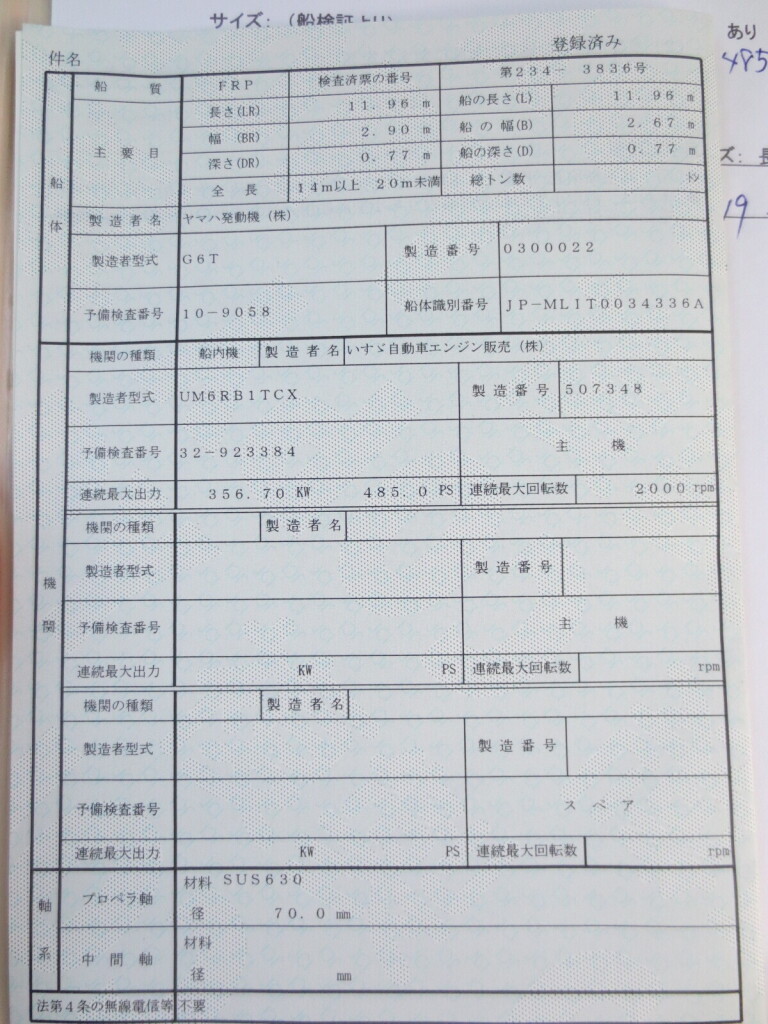 サイズ: (船検証より)
あり
485
ズ: 長
19
件名
登録済み
船体
船質 FRP 検査済票の番号 第234- 3836号
主要目
長さ(LR) 11.96 m 船の長さ(L) 11.96 m
幅(BR) 2.90 m 船の幅(B) 2.67 m
深さ(DR) 0.77 m 船の深さ(D) 0.77 m
全長 14m以上 20m未満 総トン数 トン
製造者名 ヤマハ発動機(株)
製造者型式 G6T 製造番号 0300022
予備検査番号 10-9058 船体識別番号 JP-MLIT0034336A
機関
機関の種類 船内機 製造者名 いすゞ自動車エンジン販売(株)
製造者型式 UM6RB1TCX 製造番号 507348
予備検査番号 32-923384 主機
連続最大出力 356.70 KW 485.0 PS 連続最大回転数 2000 rpm
機関の種類 製造者名
製造者型式 製造番号
予備検査番号 主機
連続最大出力 KW PS 連続最大回転数 rpm
機関の種類 製造者名
製造者型式 製造番号
予備検査番号 スペア
連続最大出力 KW PS 連続最大回転数 rpm
軸系
プロペラ軸 材料 SUS630
径 70.0 mm
中間軸 材料
径 mm
法第4条の無線電信等 不要